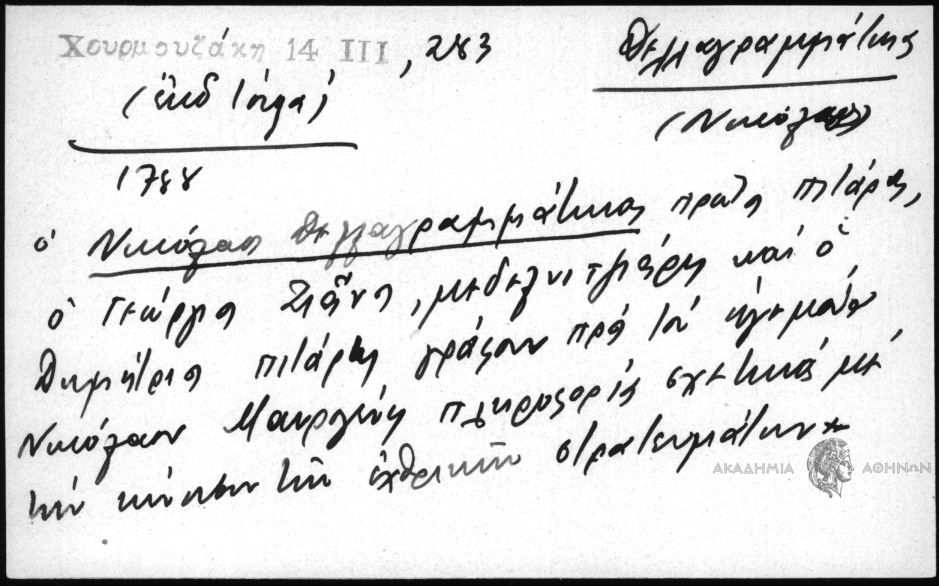 Χουρμουζάκη 14 III , 283
(ἐκδ Ἰόργα)
1788
Δελλαγραμμάτικας
(Νικόλαος)
ὁ Νικόλαος Δελλαγραμμάτικας πρώην πιτάρης,
ὁ Γεώργιος Σιάνος, μεδελνιτζιάρης καὶ ὁ
Δημήτριος πιτάρης γράφουν πρὸς τὸν ἡγεμόνα
Νικόλαον Μαυρογένη πληροφορίες σχετικὰς μὲ
τὴν κίνησιν τῶν ἐχθρικῶν στρατευμάτων
ΑΚΑΔΗΜΙΑ ΑΘΗΝΩΝ